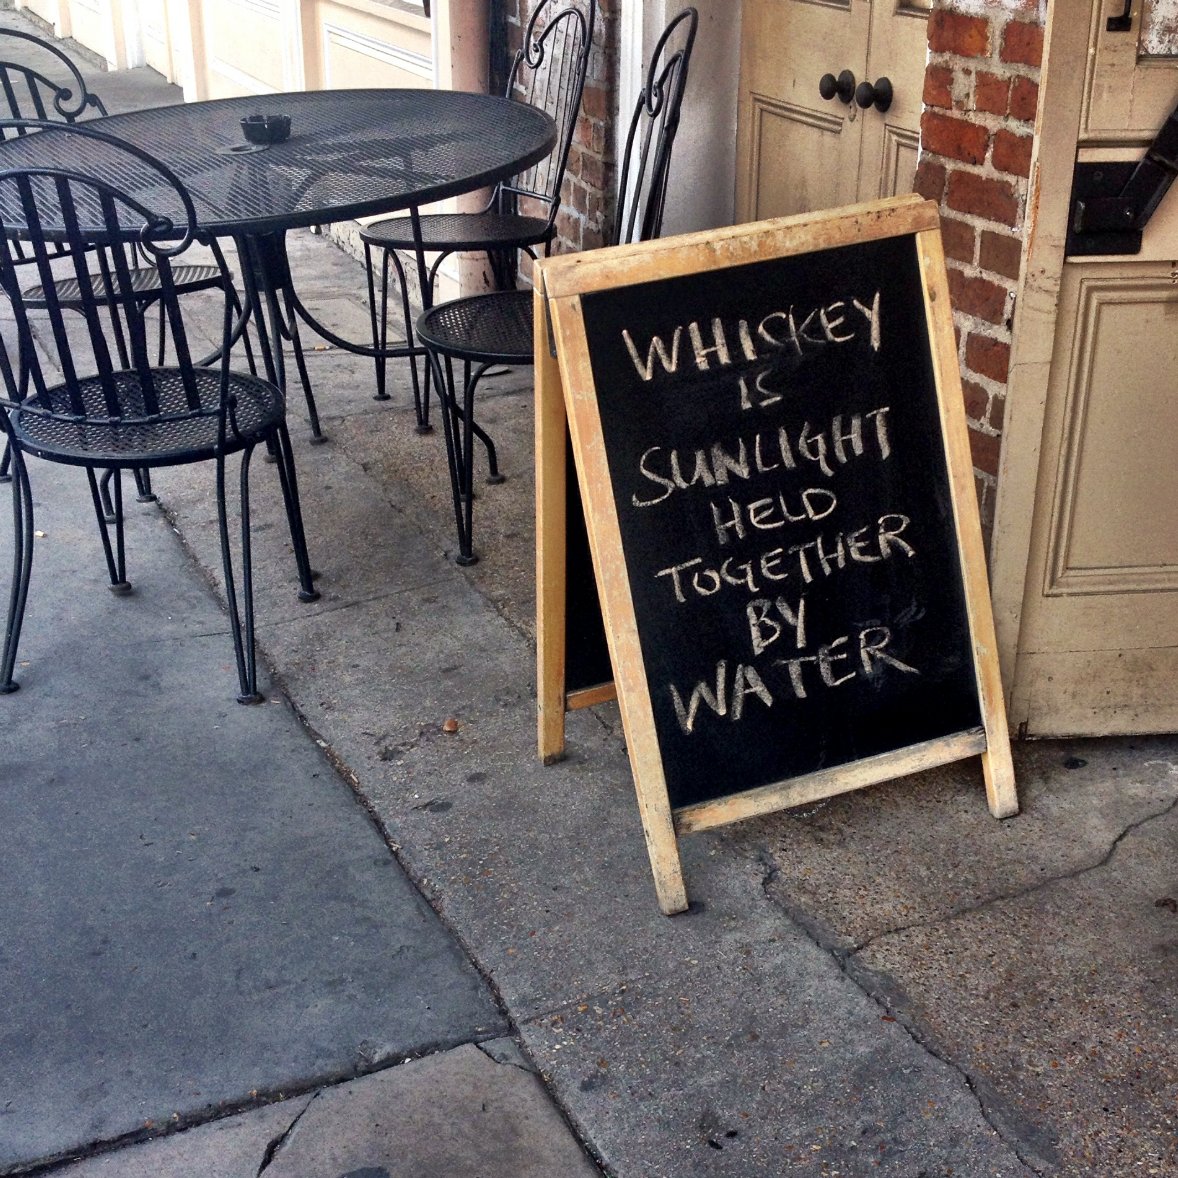 WHISKEY
IS
SUNLIGHT
HELD
TOGETHER
BY
WATER